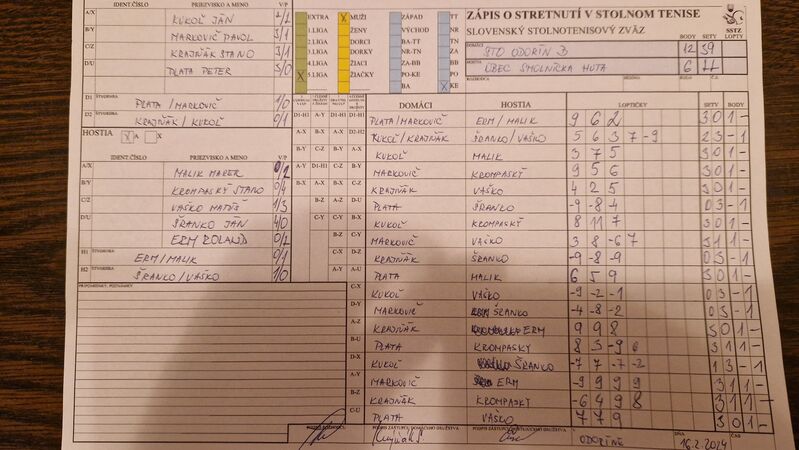 IDENT.ČÍSLO PRIEZVISKO A MENO V/P
A/X KUKOĽ JÁN 2/2
B/Y MARKOVIČ PAVOL 3/1
C/Z KRAJŇÁK STANO 3/1
D/U PLATA PETER 3/0
D1 ŠTVORHRA PLATA/MARKOVIČ 1/0
D2 KRAJŇÁK/KUKOĽ 0/1
HOSTIA X A X
IDENT.ČÍSLO PRIEZVISKO A MENO V/P
A/X MALIK MAREK 0/2
B/Y KROMPASKÝ STANO 0/4
C/Z VAŠKO MATÚŠ 1/3
D/U ŠRANKO JÁN 4/0
ERM ROLAND 0/2
H1 ŠTVORHRA ERM/MALIK 0/1
H2 ŠRANKO/VAŠKO 1/0
PRIPOMIENKY, POZNÁMKY
EXTRA X MUŽI ZÁPAD TT
1.LIGA ŽENY VÝCHOD NR
2.LIGA DORCI BA-TT TN
3.LIGA DORKY NR-TN ZA
4.LIGA ŽIACI ZA-BB BB
X 5.LIGA ŽIAČKY PO-KE PO
BA X KE
ZÁPIS O STRETNUTÍ V STOLNOM TENISE
SLOVENSKÝ STOLNOTENISOVÝ ZVÄZ
SSTZ
BODY SETY LOPTY
DOMÁCI STO ODORÍN B 12 39
HOSTIA OBEC SMOLNÍCKA HUTA 6
DOMÁCI HOSTIA LOPTIČKY SETY BODY
PLATA/MARKOVIČ ERM/MALIK 9 6 2 3 0 1 -
KUKOĽ/KRAJŇÁK ŠRANKO/VAŠKO 5 6 3 7 -9 2 3 - 1
KUKOĽ MALIK 3 7 5 3 0 1 -
MARKOVIČ KROMPASKÝ 9 5 6 3 0 1 -
KRAJŇÁK VAŠKO 4 2 5 3 0 1 -
PLATA ŠRANKO -9 -8 -4 0 3 - 1
KUKOĽ KROMPASKÝ 8 11 7 3 0 1 -
MARKOVIČ VAŠKO 3 8 -6 7 3 1 1 -
KRAJŇÁK ŠRANKO -9 -8 -9 0 3 - 1
PLATA MALIK 6 5 9 3 0 1 -
KUKOĽ VAŠKO -9 -2 -1 0 3 - 1
MARKOVIČ ŠRANKO -4 -8 -2 0 3 - 1
KRAJŇÁK ERM 9 9 8 3 0 1 -
PLATA KROMPASKÝ 8 3 -9 6 3 1 1 -
KUKOĽ ŠRANKO -7 7 -7 -2 1 3 - 1
MARKOVIČ ERM -9 9 9 9 3 1 1 -
KRAJŇÁK KROMPASKÝ -6 4 9 8 3 1 1 -
PLATA VAŠKO 7 7 9 3 0 1 -
PODPIS ZÁSTUPCU DOMÁCEHO DRUŽSTVA PODPIS ZÁSTUPCU HOSŤUJÚCEHO DRUŽSTVA DŇA ČAS
ODORÍNE 16.2.2024